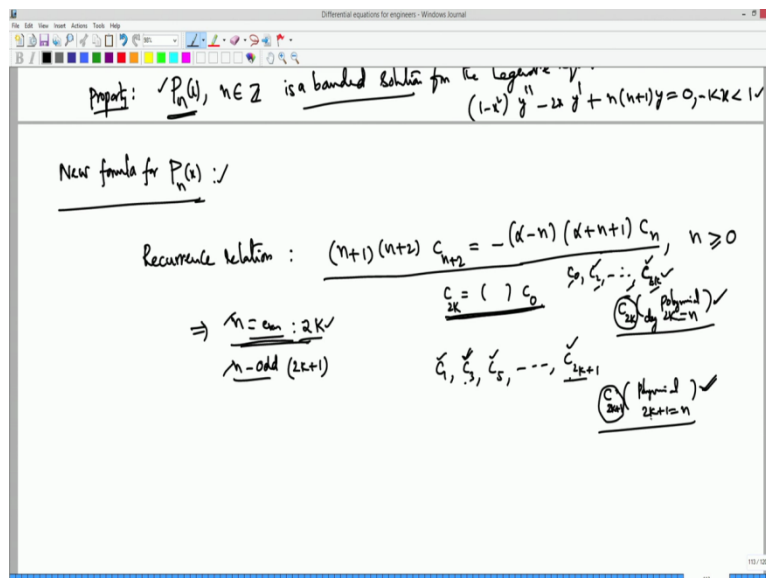 Differential equations for engineers - Windows Journal
File Edit View Insert Actions Tools Help
Property: ✓P_n(x), n ∈ Z is a bounded solution for the Legendre
(1-x²) y'' - 2x y' + n(n+1)y = 0, -1<x<1✓
New formula for P_n(x) :✓
Recurrence relation : (n+1)(n+2) C_{n+2} = -(α-n)(α+n+1) C_n, n ≥ 0
C_{2K} = ( ) C_0
C_0, C_2, -.., C_{2K}✓
C_{2K} ( Polynomial deg 2K=n )✓
⇒ n = even : 2K✓
n-odd (2K+1)
C_1, C_3, C_5, ----, C_{2K+1}
C_{2K+1} ( Polynomial 2K+1=n )✓